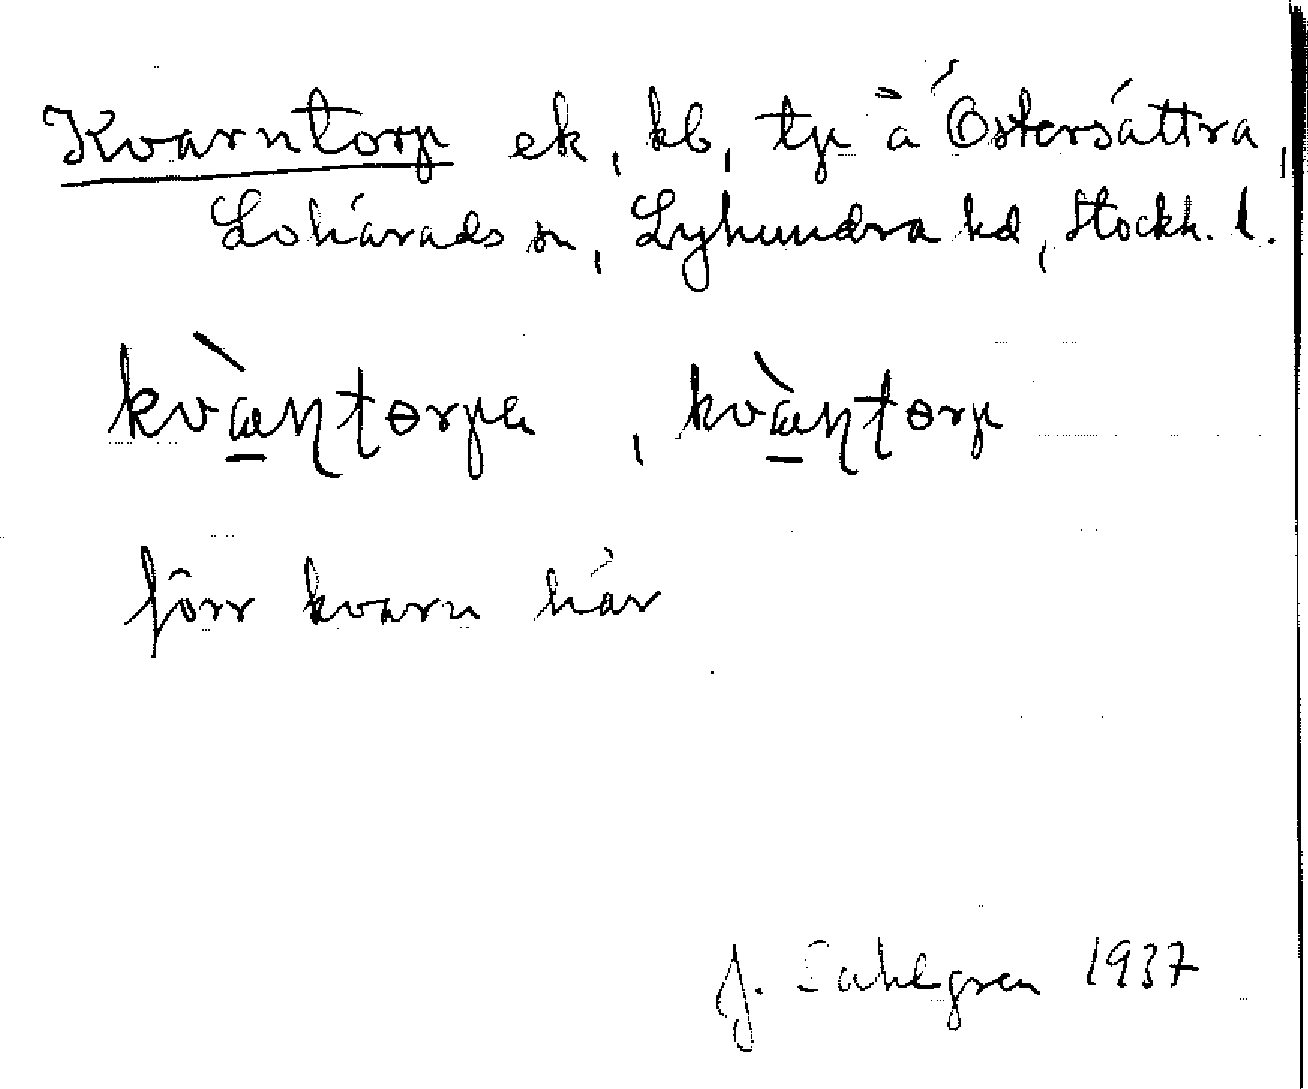 Kvarntorp ek, kb, tp å Östersättra,
Lohärads sn, Lyhundra hd, Stockh. l.
kvæ̀ɳtɵrpa, kvæ̀ɳtɵrp
förr kvarn här
J. Sahlgren 1937